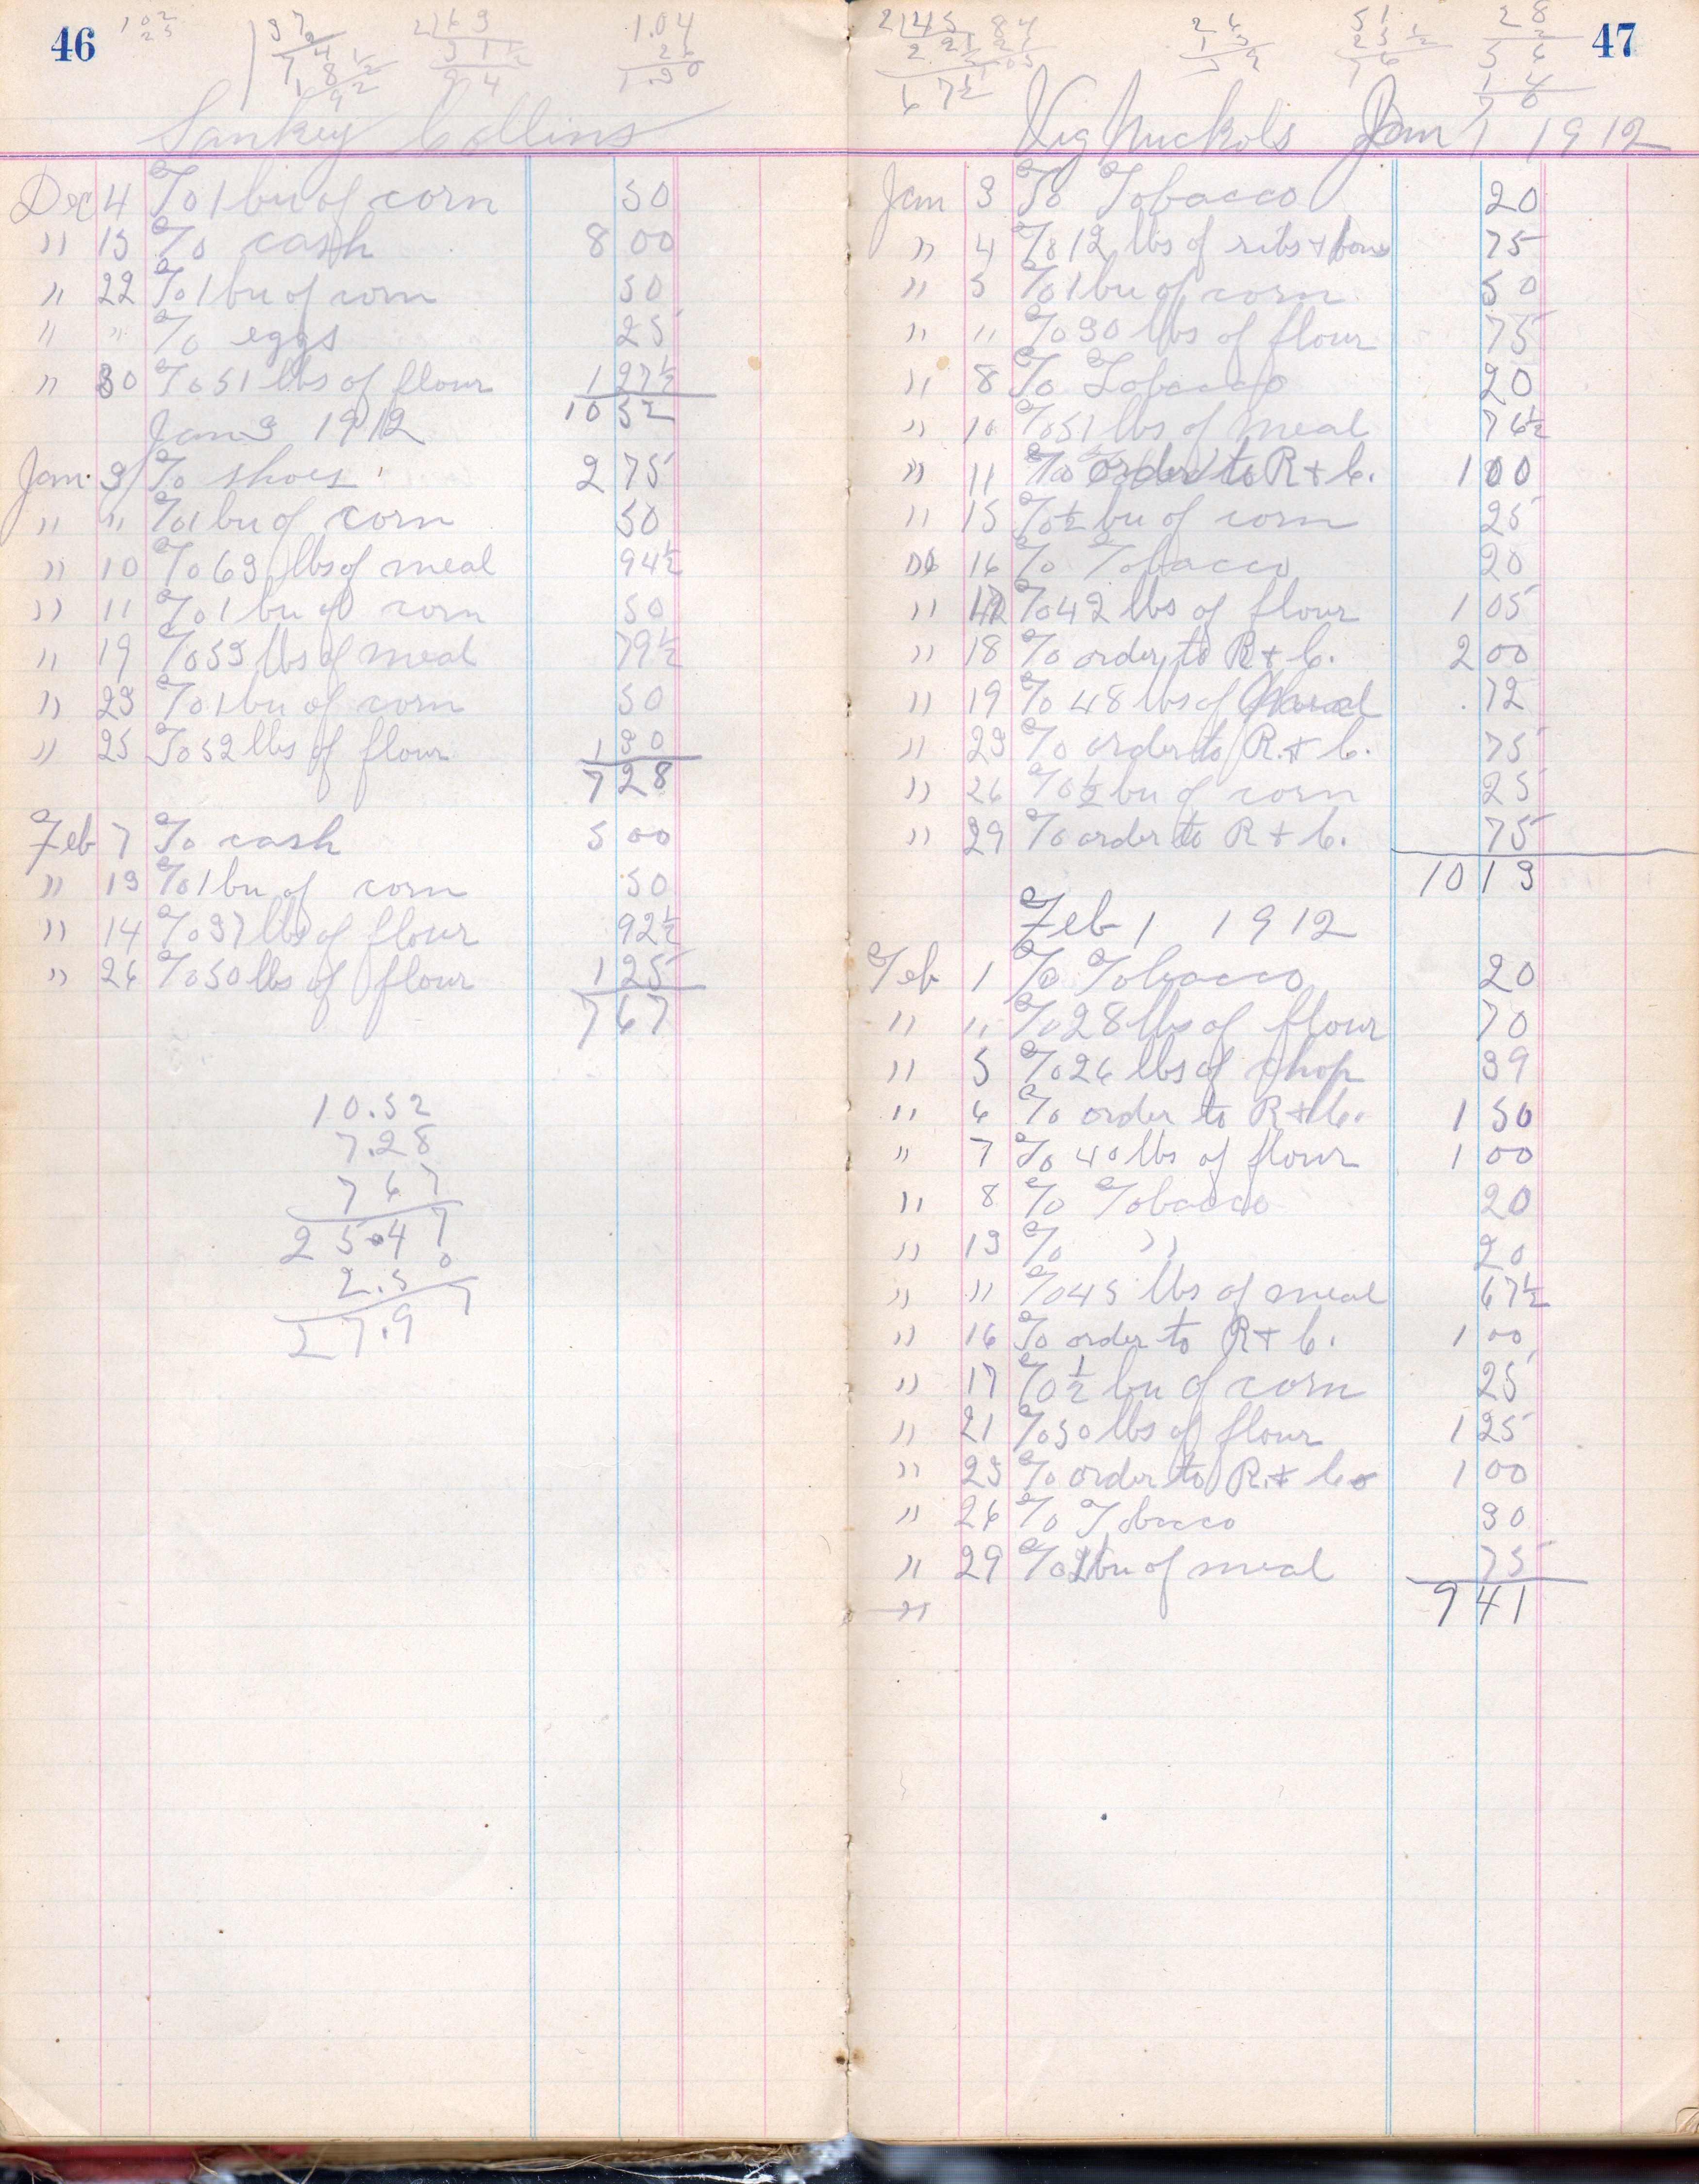 46
102
25
37
2 1/2
74
18 1/2
92 1/2
2|63
31 1/2
94
1.04
26
1.30
Sankey Collins
Dec 4 To 1 bu of corn 50
" 15 To cash 8 00
" 22 To 1 bu of corn 50
" " To eggs 25
" 30 To 51 lbs of flour 1 27 1/2
10 52
Jan 3 1912
Jan. 3 To shoes 2 75
" " To 1 bu of corn 50
" 10 To 63 lbs of meal 94 1/2
" 11 To 1 bu of corn 50
" 19 To 53 lbs of meal 79 1/2
" 23 To 1 bu of corn 50
" 25 To 52 lbs of flour 1 30
7 28
Feb 7 To cash 5 00
" 13 To 1 bu of corn 50
" 14 To 37 lbs of flour 92 1/2
" 26 To 50 lbs of flour 1 25
7 67
10.52
7.28
7 67
25.47
2.50
27.97
47
2|45
22 1/2
67 1/2
84
21
1 05
26
13
39
51
25 1/2
76
28
2
56
14
70
Vig Nuckols Jan 1 1912
Jan 3 To Tobacco 20
" 4 To 12 lbs of ribs + bone 75
" 5 To 1 bu of corn 50
" " To 30 lbs of flour 75
" 8 To Tobacco 20
" 10 To 51 lbs of meal 76 1/2
" 11 To order to R + C. 1 00
" 15 To 1/2 bu of corn 25
" 16 To Tobacco 20
" 17 To 42 lbs of flour 1 05
" 18 To order to R + C. 2 00
" 19 To 48 lbs of meal .72
" 23 To order to R. + C. 75
" 26 To 1/2 bu of corn 25
" 29 To order to R + C. 75
10 13
Feb 1 1912
Feb 1 To Tobacco 20
" " To 28 lbs of flour 70
" 5 To 26 lbs of chop 39
" 6 To order to R + C. 1 50
" 7 To 40 lbs of flour 1 00
" 8 To Tobacco 20
" 13 To " 20
" " To 45 lbs of meal 67 1/2
" 16 To order to R + C. 1 00
" 17 To 1/2 bu of corn 25
" 21 To 50 lbs of flour 1 25
" 23 To order to R. + Co 1 00
" 26 To Tobacco 30
" 29 To 1 bu of meal 75
" 9 41